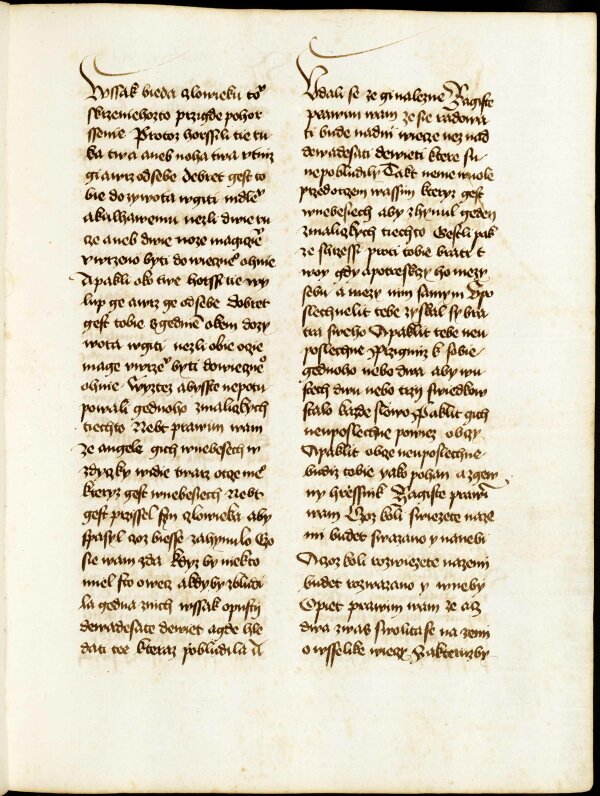 Wssak bieda czlowieku to͛
skrzeniehozto przigde pohor
ssenie Protoz horssyli tie ru
ka twa aneb noha twa vtniz
gi awrz odsebe Dobret gest to
bie dozywota wgiti mdle͛
akulhawemu nezli dwie ru
cze aneb dwie noze magicze͛
vwrzeno byti dowieczne͛ ohnie
Apakli oko twe horssi tie wy
lup ge awrz ge odsebe dobret
gest tobie sgednie͛ okem dozy
wota wgiti nezli obie oczie
magie vwrze͛ byti dowieczne͛o
ohnie Wyztez abysste nepotu
powali gednoho zmaliczkych
tiechto Nebt prawim wam
ze angele gich wnebesech w
zdyczky widie twarz otcze me͛
kteryz gest wnebesiech Nebt
gest prissel syn czlowieka aby
spasyl coz biesse zahynulo Co
sie wam zda kdyz by niekto
miel sto owecz akdyby zbludi
la gedna znich wssak opusti
dewadesate dewiet agde hle
dati tee kteraz pobludila A
Vdali se ze gi nalezne Zagiste
prawim wam ze sie radowa
ti bude nadni wiecze nez nad
dewadesati dewieti ktere su
nepobludily Takt nenie wuole
przed otczem wassim kteryz gest
wnebesiech aby zhynul geden
zmaliczkych tiechto Gestli pak
ze shrzessi proti tobie bratr t
woy gdy apotresktzy ho mezy
sebu a mezy nim samym Vpo
slechnelit tebe zyskal sy bra
tra sweho Apaklit tebe neu
poslechne Przigmiz k sobie
gednoho nebo dwa aby wu
stech dwu nebo trzy swiedkow
stalo kazde slowo Paklit gich
neuposlechne powiez obczy
Apaklit obcze neuposlechne
budiz tobie yako pohan a zgew
ny hrzessnik Zagiste prawi͛
wam Czoz koli swiezete naze
mi budet swazano y nanebi
Aczoz koli rozwiezete nazemi
budet rozwazano y wneby
Opiet prawim wam ze acz
dwa zwas swolita se na zemi
o wsselike wieczy Zakteruzby